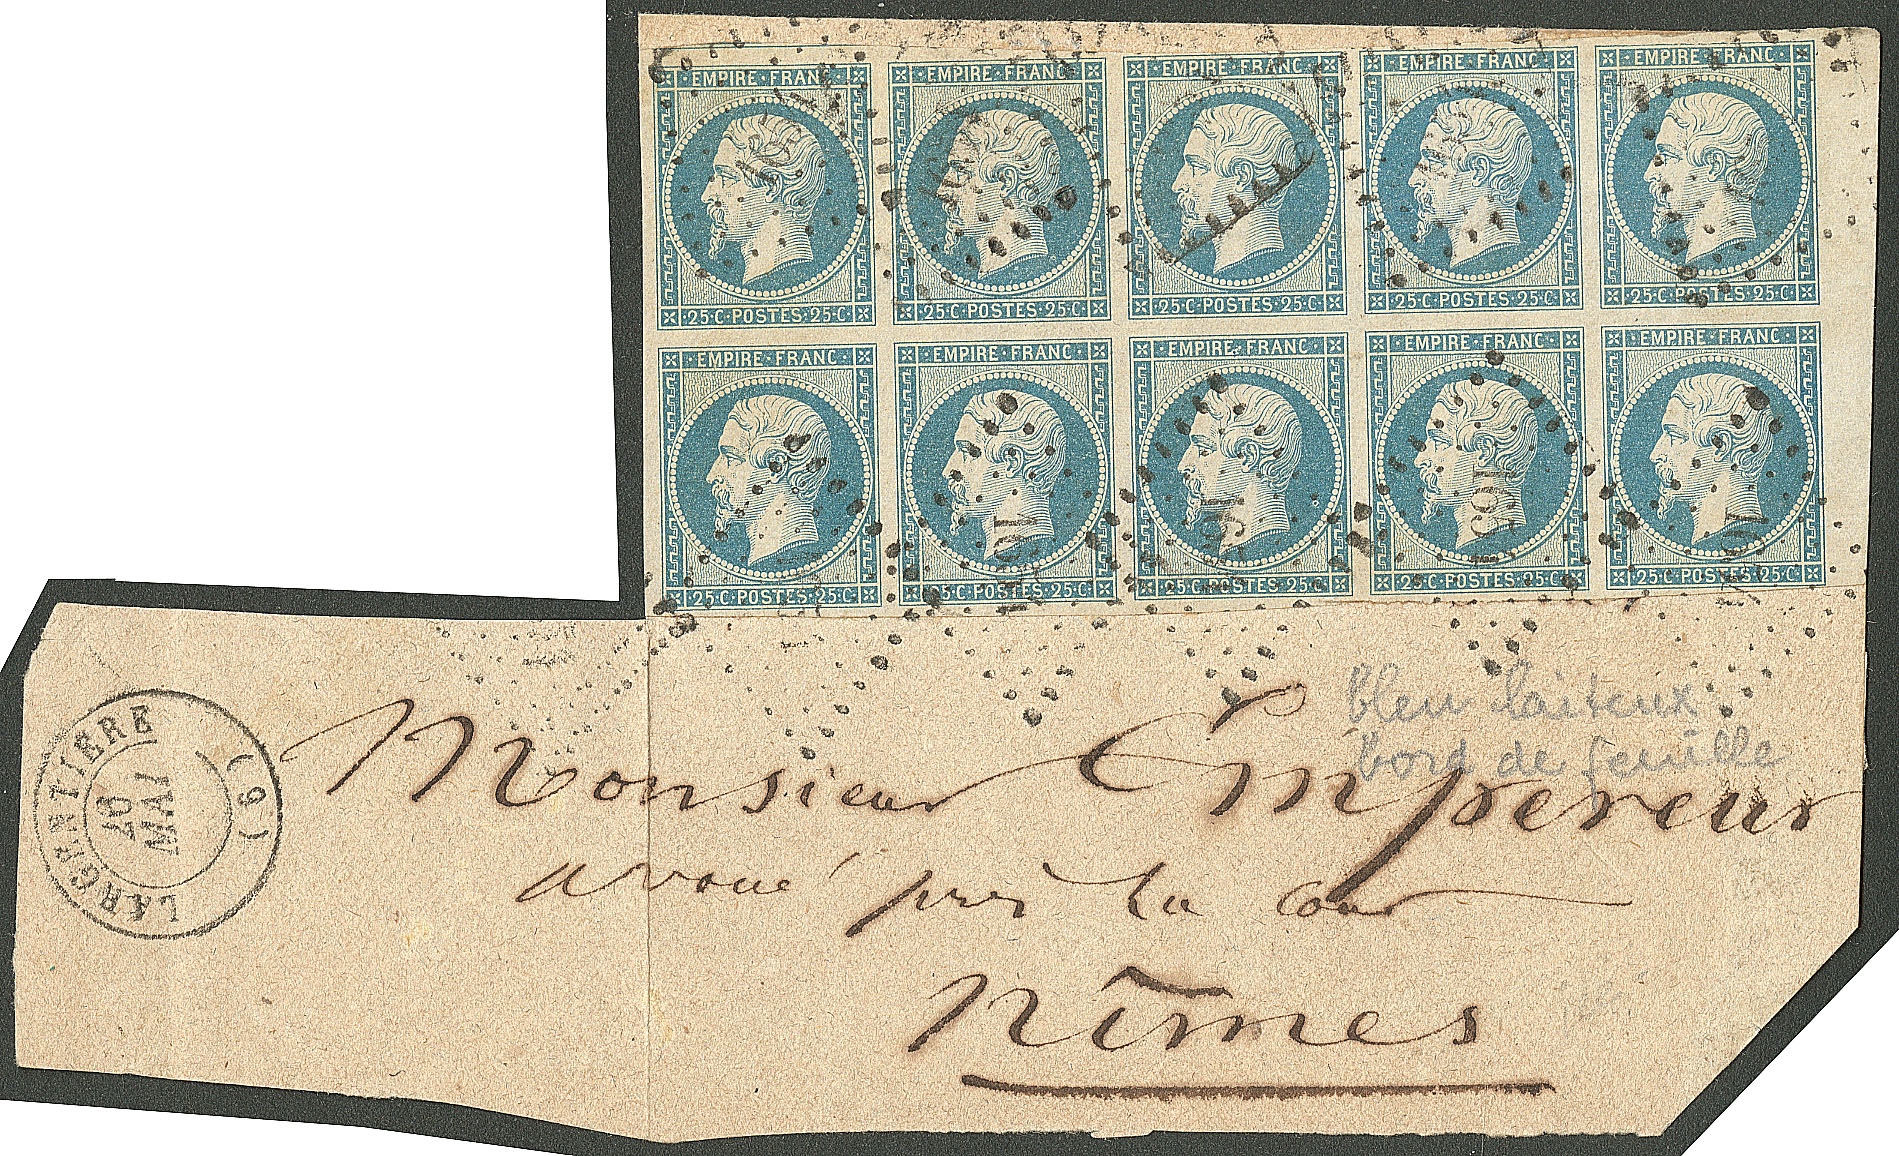 EMPIRE · FRANC EMPIRE · FRANC EMPIRE · FRANC EMPIRE · FRANC EMPIRE · FRANC
25·C·POSTES·25·C 25·C·POSTES·25·C 25·C·POSTES·25·C 25·C·POSTES·25·C 25·C·POSTES·25·C
EMPIRE · FRANC EMPIRE · FRANC EMPIRE · FRANC EMPIRE · FRANC EMPIRE · FRANC
25·C·POSTES·25·C 25·C·POSTES·25·C 25·C·POSTES·25·C 25·C·POSTES·25·C 25·C·POSTES·25·C
bleu laiteux
bord de feuille
LARGENTIERE (6)
20
MAI
Monsieur Empereur
avoué près la Cour
Nîmes